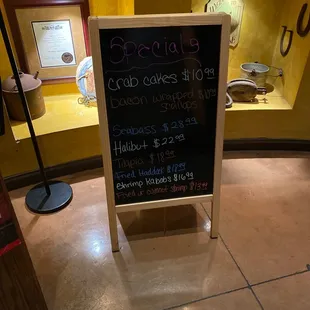 Specials
Crab Cakes $10.99
Bacon wrapped
Scallops
Seabass $28.99
Halibut $22.99
Tilapia $18.99
Fried Haddock
Shrimp Kabobs $16.99
Fried Shrimp